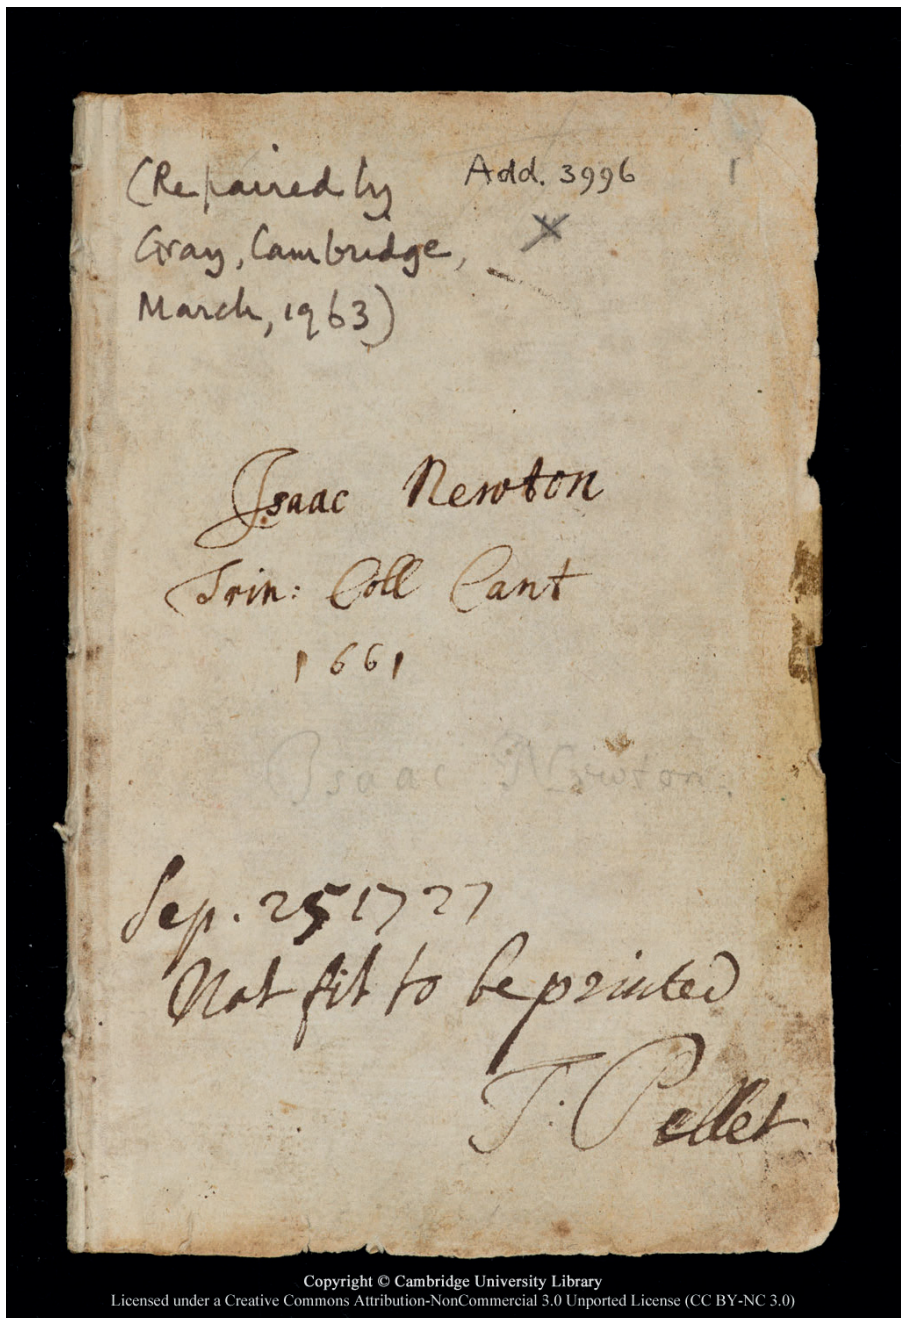 (Repaired by
Gray, Cambridge,
March, 1963)
Add. 3996
1
Isaac Newton
Trin: Coll Cant
1661
Isaac Newton.
Sep. 25 1727
Not fit to be printed
T: Pellet
Copyright © Cambridge University Library
Licensed under a Creative Commons Attribution-NonCommercial 3.0 Unported License (CC BY-NC 3.0)